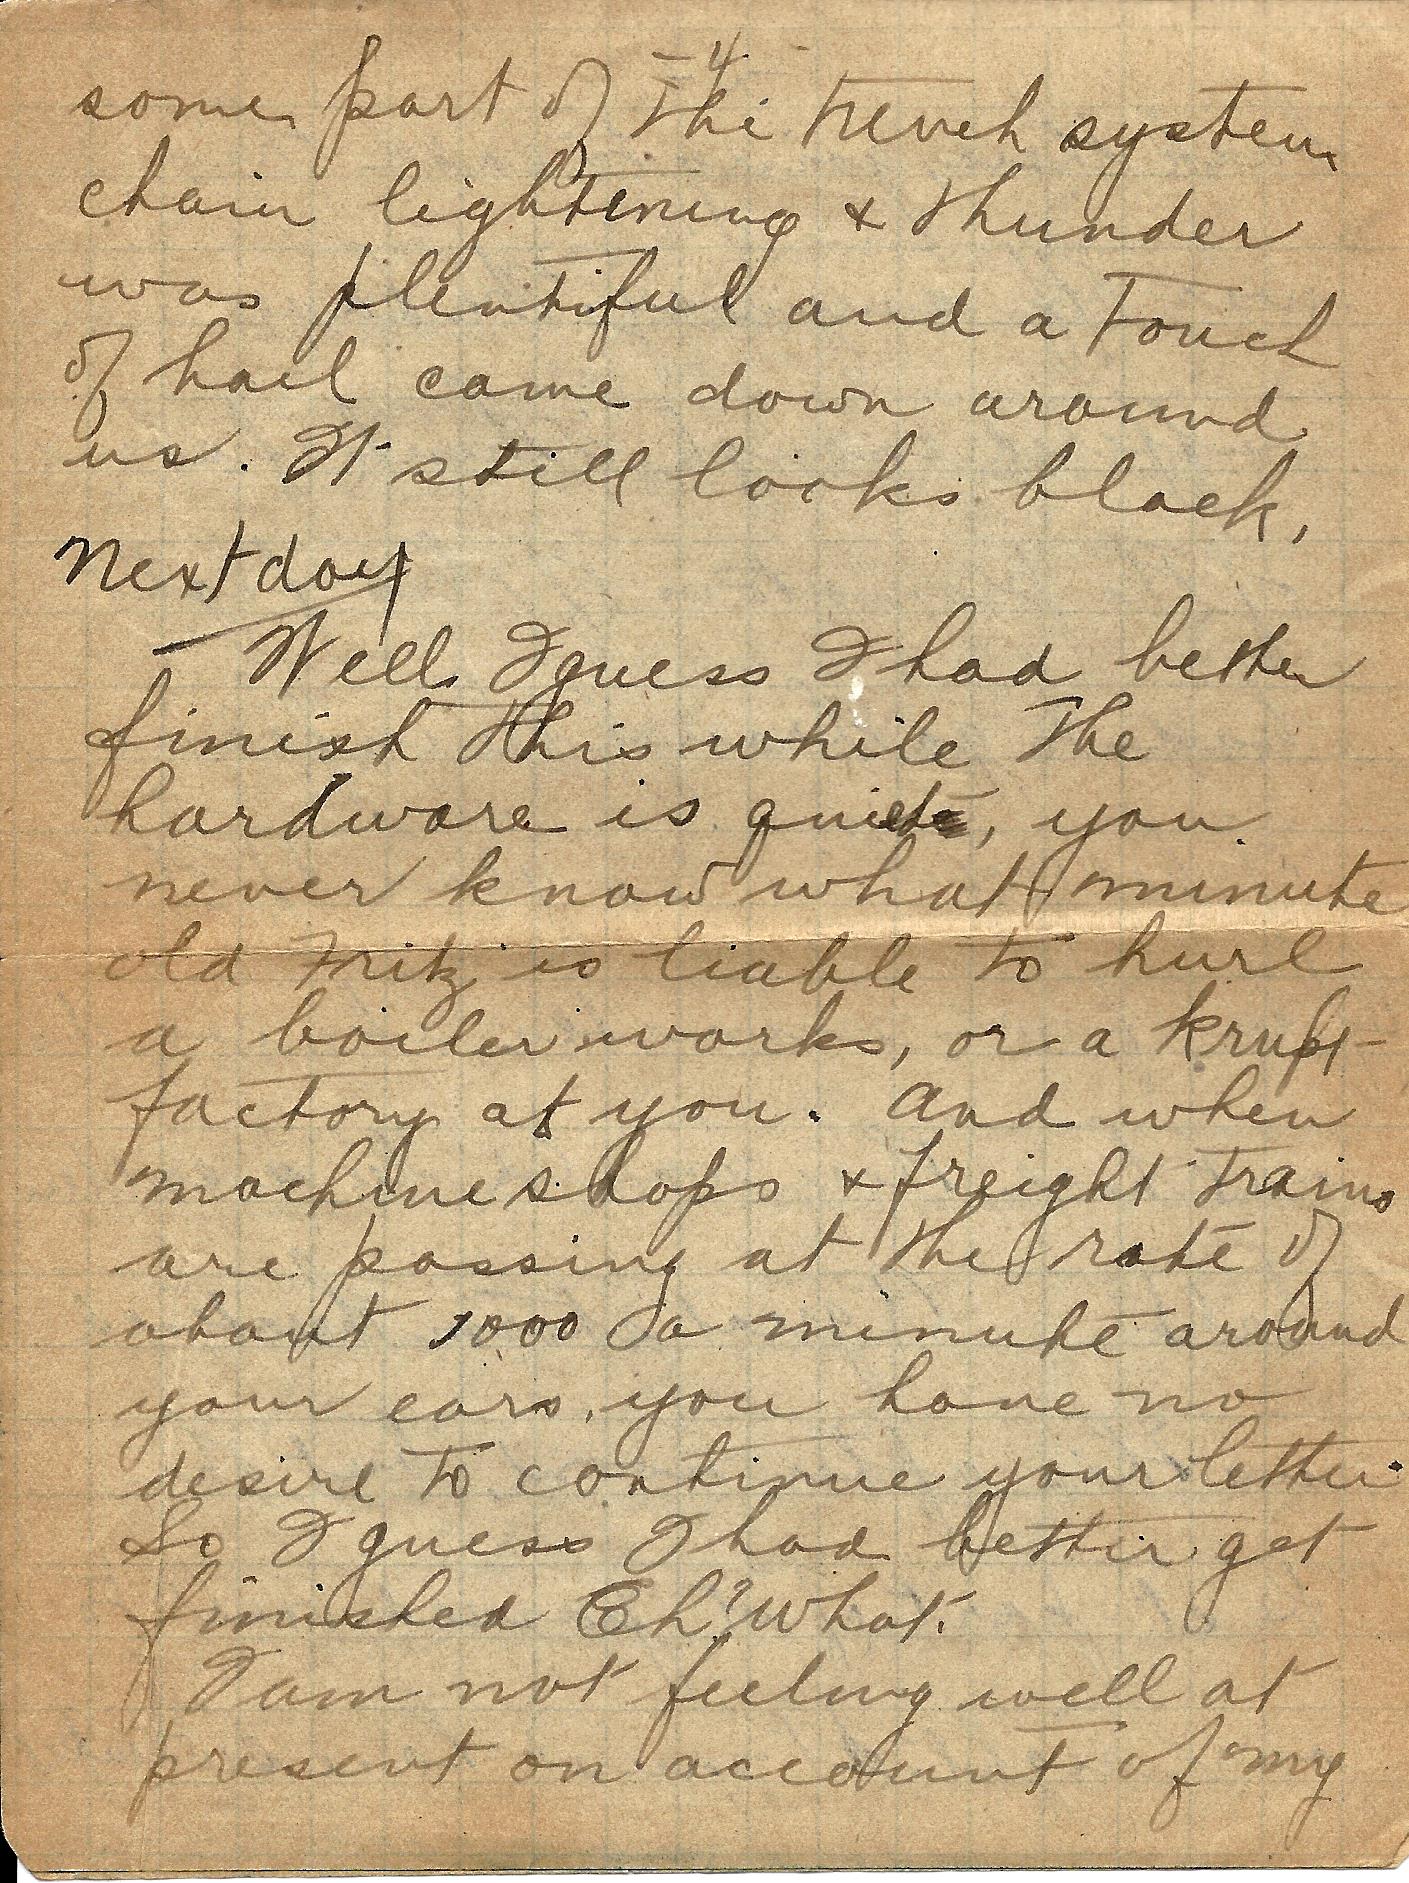 - 4 -
some part of the trench system
chain lightening & thunder
was plentiful and a touch
of hail came down around
us. It still looks black,
Next day
- Well I guess I had better
finish this while the
hardware is quiet, you
never know what minute
old Fritz is liable to hurl
a boiler works, or a Krupt
factory at you. And when
machine shops & freight trains
are passing at the rate of
about 1000 a minute around
your ears, you have no
desire to continue your letter.
So I guess I had better get
finished Eh? What.
I am not feeling well at
present on account of my